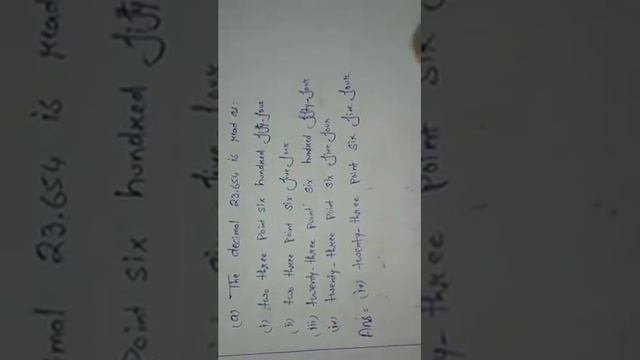 (a) The decimal 23.654 is read as:
(i) two three point six hundred fifty-four
(ii) two three point six five four
(iii) twenty-three point six hundred fifty-four
(iv) twenty-three point six five four
Ans = (iv) twenty-three point six five four